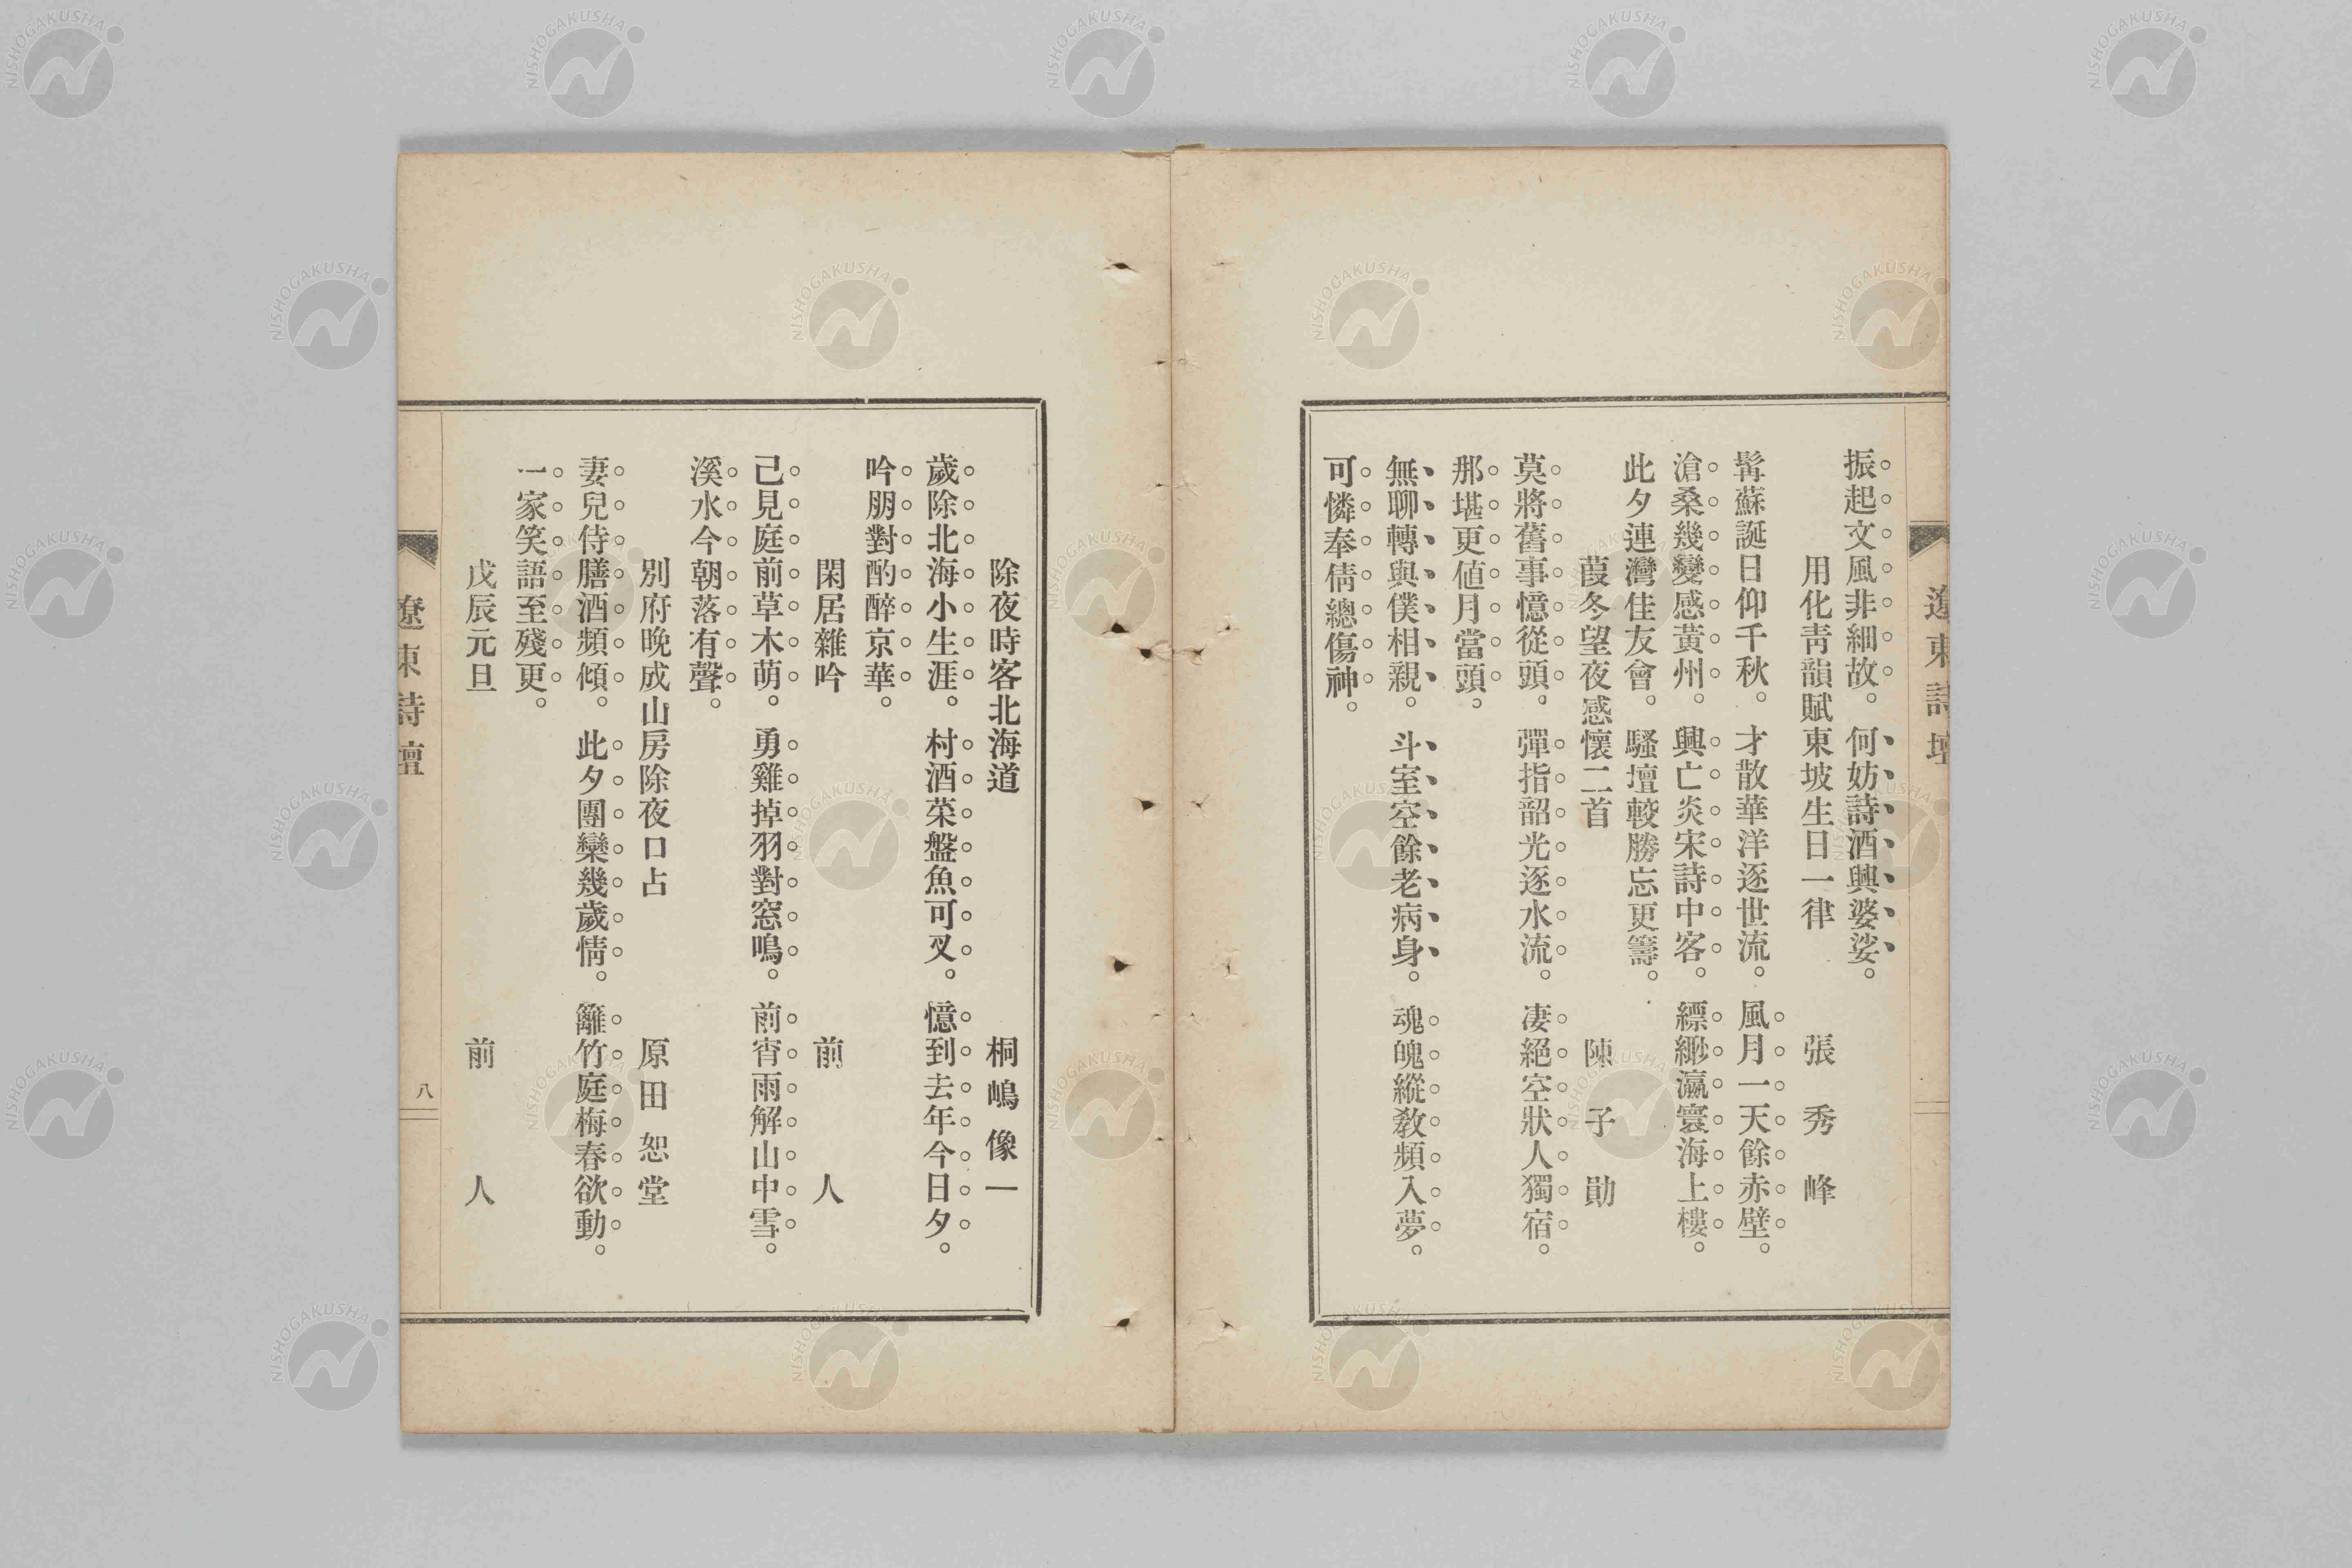 遼東詩壇
振起文風非細故。何妨詩酒興婆娑。
用化靑韻賦東坡生日一律　張秀峰
髯蘇誕日仰千秋。才散華洋逐世流。風月一天餘赤壁。
滄桑幾變感黃州。興亡炎宋詩中客。縹緲瀛寰海上樓。
此夕連灣佳友會。騷壇較勝忘更籌。
葭冬望夜感懷二首　陳子勛
莫將舊事憶從頭。彈指韶光逐水流。凄絕空狀人獨宿。
那堪更値月當頭。
無聊轉與僕相親。斗室空餘老病身。魂魄縱敎頻入夢。
可憐奉倩總傷神。
除夜時客北海道　桐嶋像一
歲除北海小生涯。村酒菜盤魚可叉。憶到去年今日夕。
吟朋對酌醉京華。
閑居雜吟　前人
己見庭前草木萌。勇雞掉羽對窓鳴。前宵雨解山中雪。
溪水今朝落有聲。
別府晚成山房除夜口占　原田恕堂
妻兒侍膳酒頻傾。此夕團欒幾歲情。籬竹庭梅春欲動。
一家笑語至殘更。
戊辰元旦　前人
遼東詩壇
八
NISHOGAKUSHA